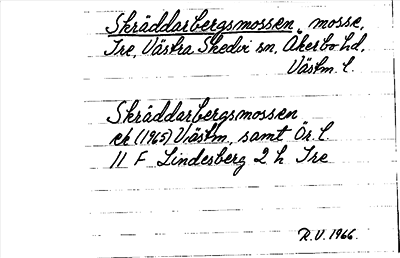 Skräddarbergsmossen, mosse,
Tre, Västra Skedvi sn, Åkerbo hd,
Västm. l.
Skräddarbergsmossen
ek (1965) Västm. samt Ör. l.
11 F Lindesberg 2 h Tre
R.V. 1966.